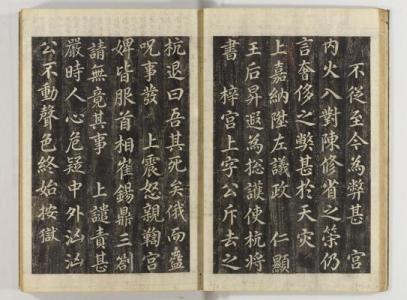 不從至今為弊甚　宮
內火入對陳修省之策仍
言奢侈之弊甚扵天灾
上嘉納陞左議政　仁顯
王后昇遐為揔護使杭將
書　梓宮上字公斥去之
杭退曰吾其死矣俄而蠱
呪事發　上震怒親鞫宮
婢皆服首相崔錫鼎三劄
請無竟其事　上譴責甚
嚴時人心危疑中外洶洶
公不動聲色終始按獄